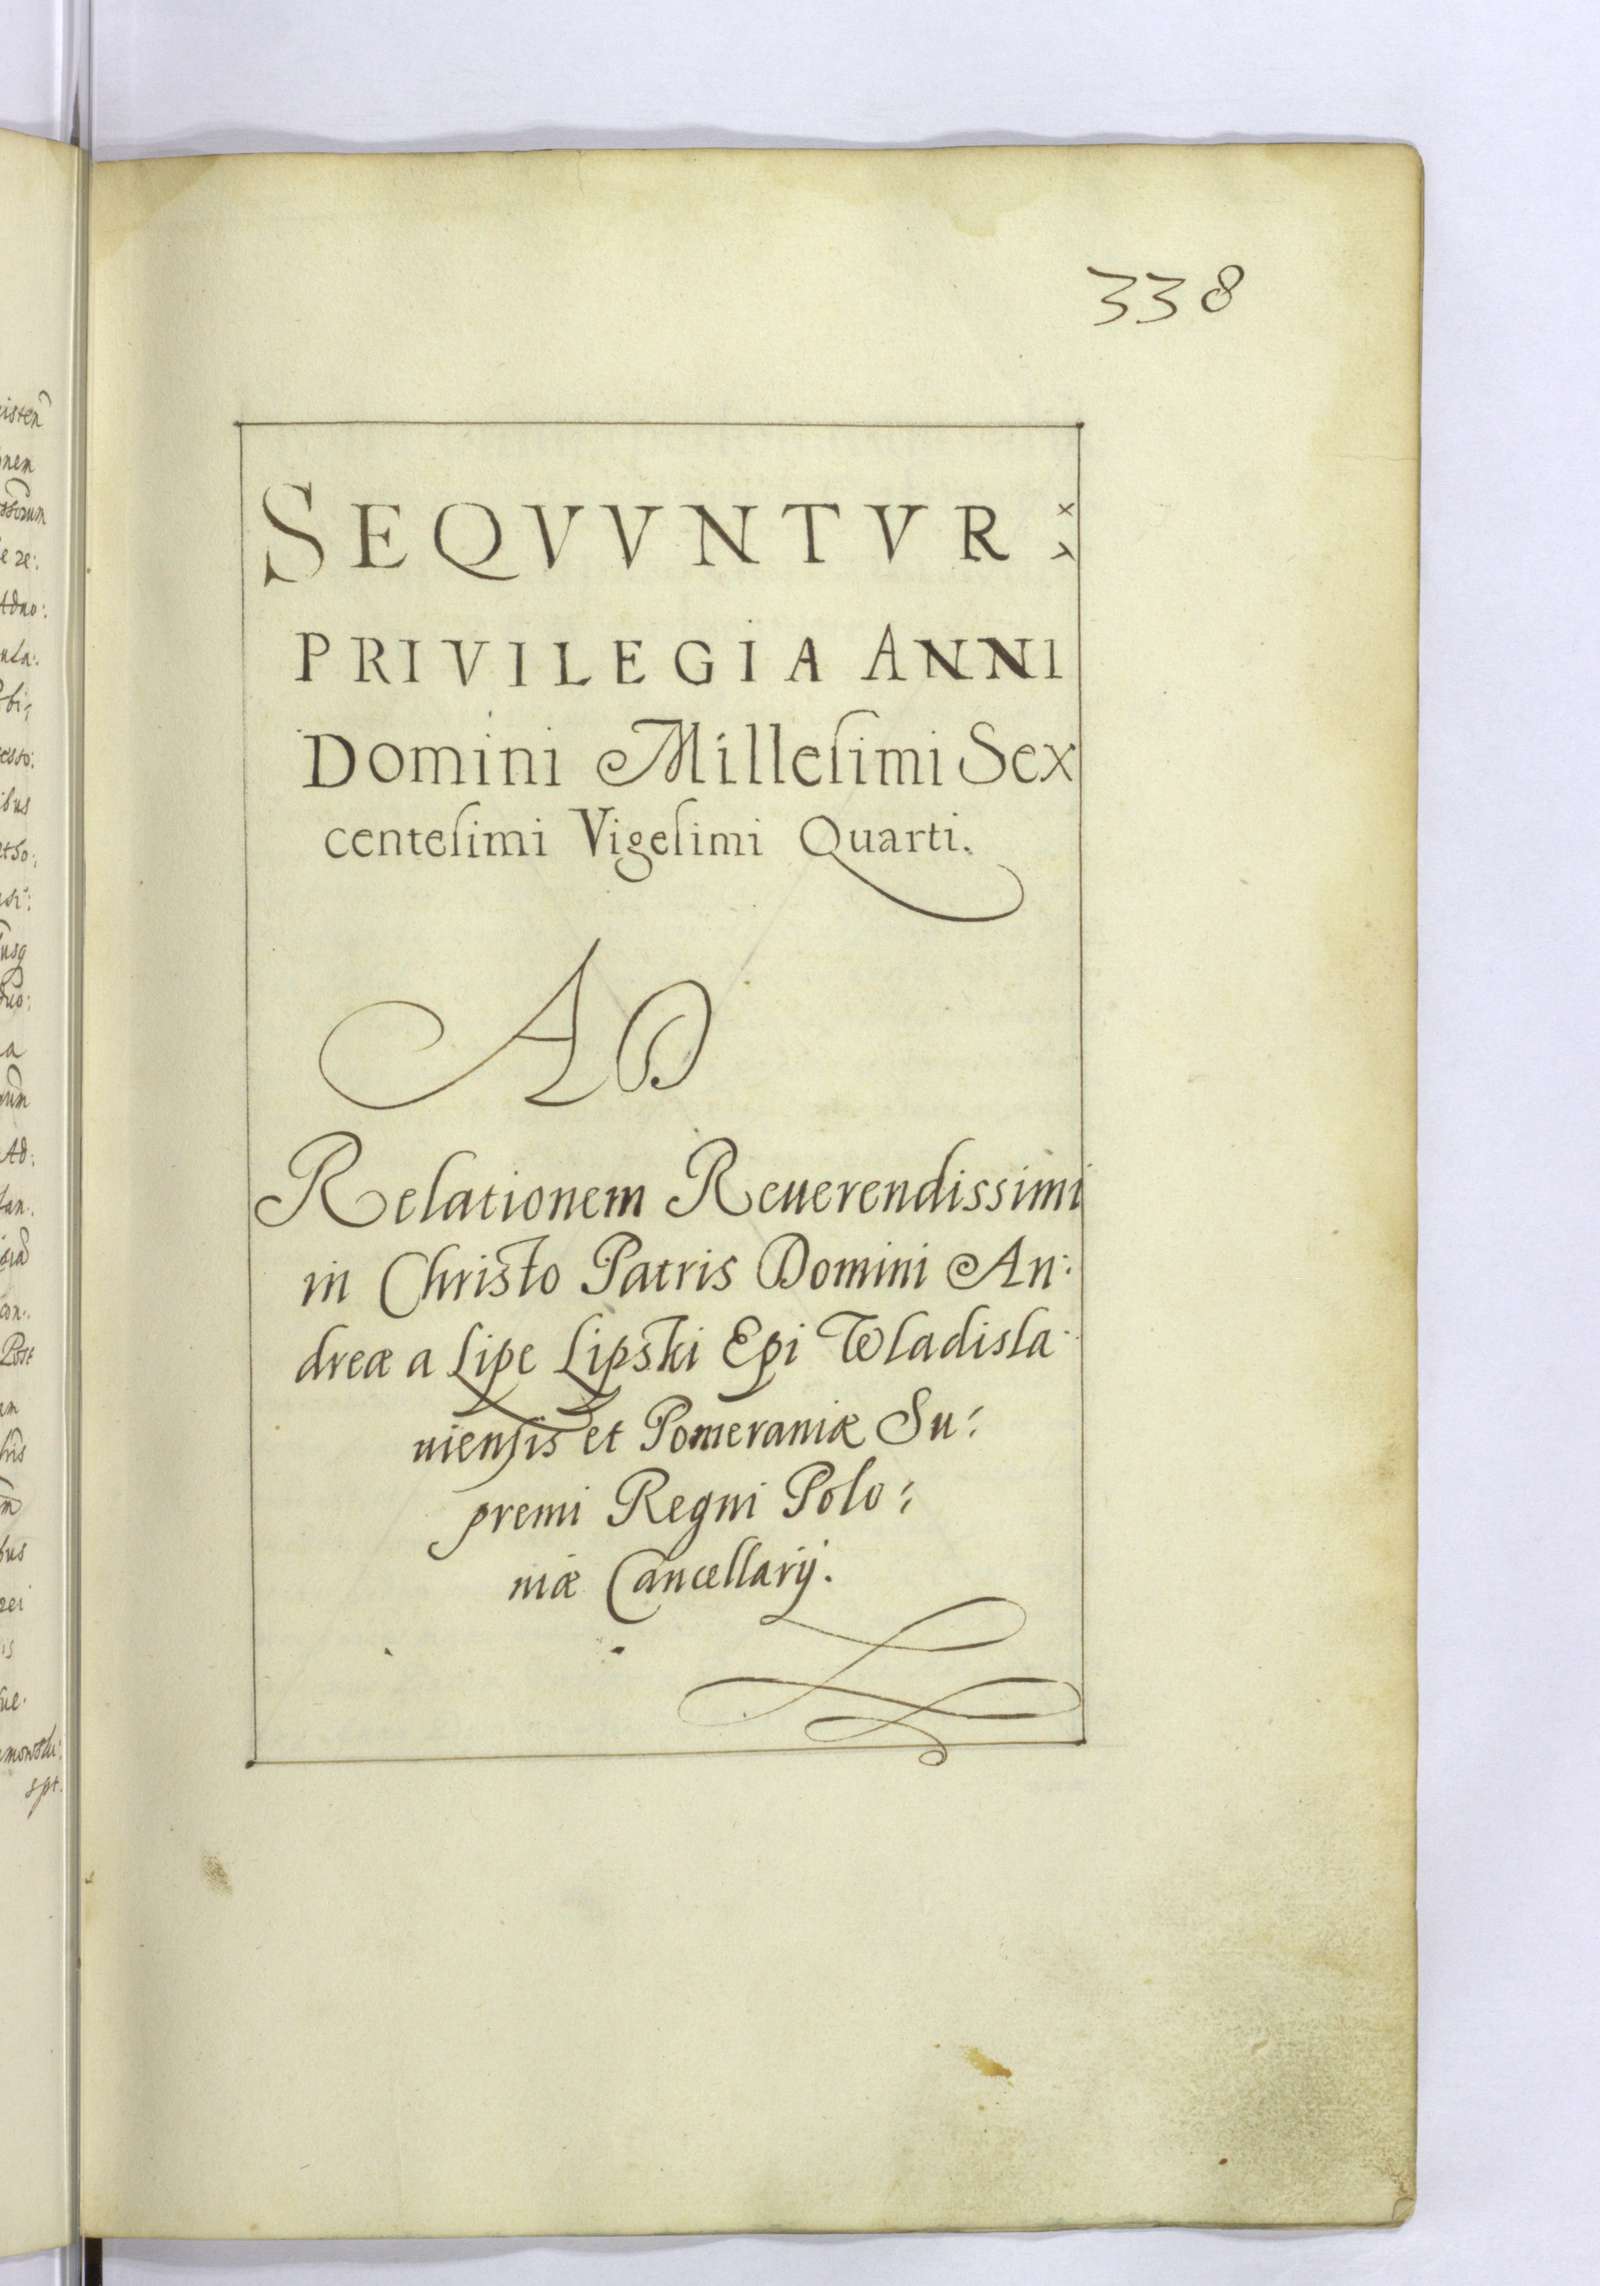 338
SEQVVNTVR:
PRIVILEGIA ANNI
Domini Milleſimi Sex
centeſimi Vigeſimi Quarti.
AD
Relationem Reuerendissimi
in Christo Patris Domini An:
dreæ a Lipe Lipski Epi Wladisla:
uiensis et Pomeraniæ Su:
premi Regni Polo:
niæ Cancellarij.